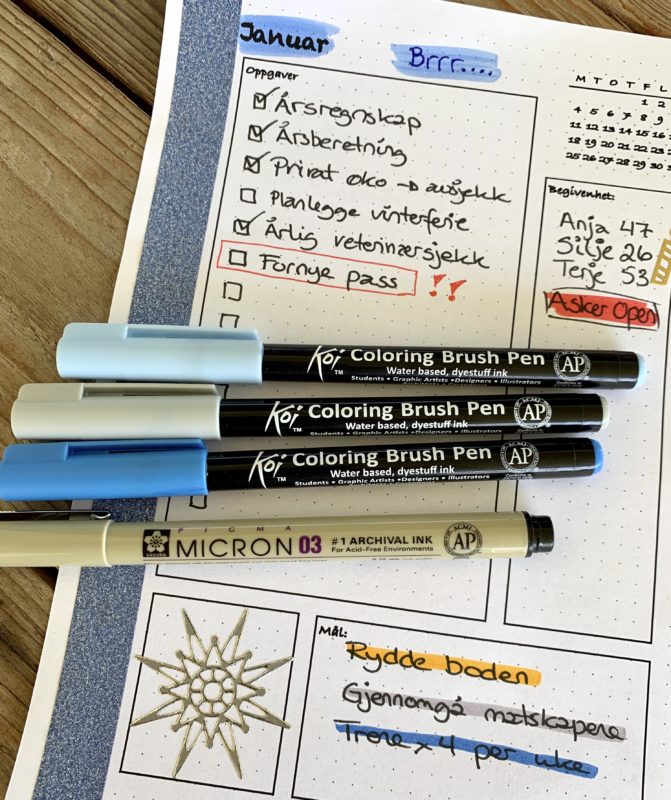 Januar
Brrr....
M T O T F L
1 2
4 5 6 7 8 9
11 12 13 14 15 16
18 19 20 21 22 23
25 26 27 28 29 30
Oppgaver
Årsregnskap
Årsberetning
Privat øko → avsjekk
Planlegge vinterferie
Årlig veterinærsjekk
Fornye pass !!
Begivenhet:
Anja 47
Silje 26
Terje 53
Asker Open
Koi TM Coloring Brush Pen
Water based, dyestuff ink
Students • Graphic Artists • Designers • Illustrators
ACMI AP
Koi TM Coloring Brush Pen
Water based, dyestuff ink
Students • Graphic Artists • Designers • Illustrators
ACMI AP
Koi TM Coloring Brush Pen
Water based, dyestuff ink
Students • Graphic Artists • Designers • Illustrators
ACMI AP
SAKURA
PIGMA
MICRON 03
#1 ARCHIVAL INK
For Acid-Free Environments
ACMI AP
Mål:
Rydde boden
Gjennomgå matskapene
Trene x 4 per uke